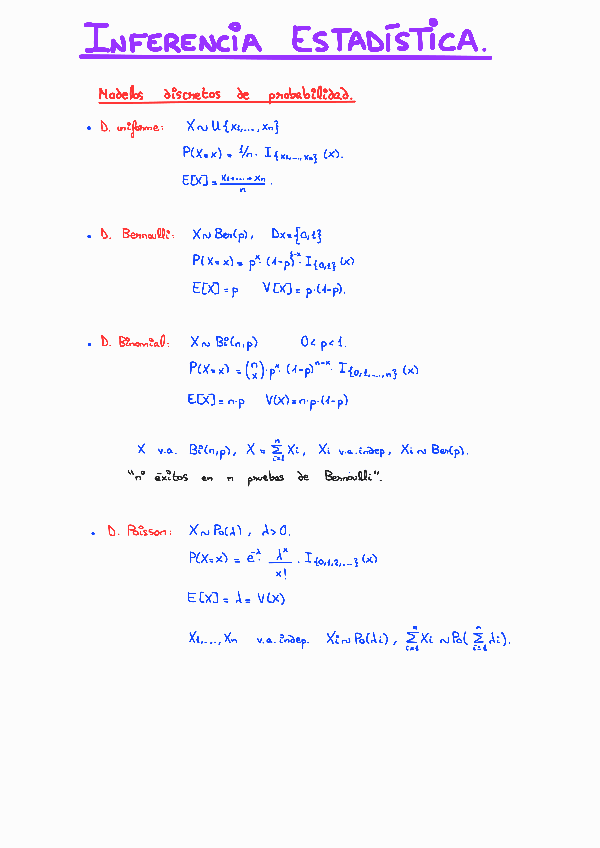 INFERENCIA ESTADÍSTICA.
Modelos discretos de probabilidad.
• D. uniforme: X ~ U{x₁,...,xₙ}
P(X=x) = 1/n · I{x₁,...,xₙ} (x).
E[X] = (x₁+...+xₙ)/n .
• D. Bernoulli: X ~ Ber(p), Dx = {0,1}
P(X=x) = pˣ · (1-p)¹⁻ˣ · I{0,1} (x)
E[X] = p V[X] = p·(1-p).
• D. Binomial: X ~ Bi(n,p) 0 < p < 1.
P(X=x) = (n x) · pˣ · (1-p)ⁿ⁻ˣ · I{0,1,...,n} (x)
E[X] = n·p V(X) = n·p·(1-p)
X v.a. Bi(n,p), X = Σᵢ₌₁ⁿ Xi, Xi v.a. indep, Xi ~ Ber(p).
"nº éxitos en n pruebas de Bernoulli".
• D. Poisson: X ~ Po(λ), λ > 0.
P(X=x) = e^-λ · λˣ/x! · I{0,1,2,...} (x)
E[X] = λ = V(X)
X₁,...,Xₙ v.a. indep. Xi ~ Po(λi), Σᵢ₌₁ⁿ Xi ~ Po( Σᵢ₌₁ⁿ λi).